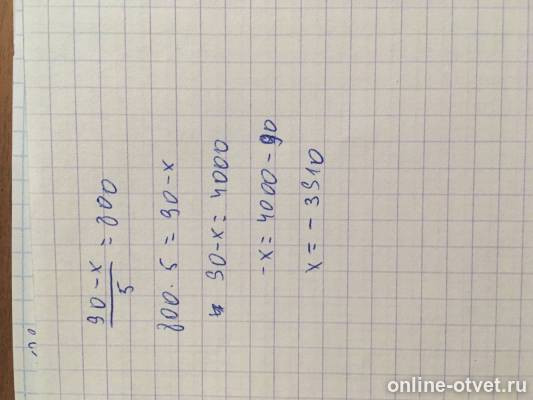 90 - x / 5 = 800
800 · 5 = 90 - x
90 - x = 4000
-x = 4000 - 90
x = - 3910
online-otvet.ru